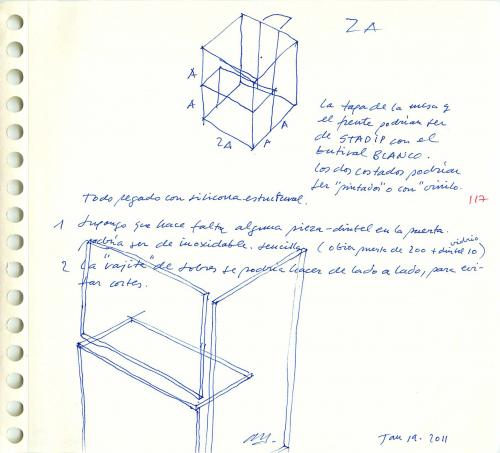 2A
A
A
2A
A
A
La tapa de la mesa y
el frente podrían ser
de STADIP con el
butiral BLANCO.
Los dos costados podrían
ser "pintados" o con "vinilo.
Todo pegado con silicona estructural.
117
1 Supongo que hace falta alguna pieza-dintel en la puerta.
podría ser de inoxidable. sencillo (o bien puerta de 200 + dintel 10) vidrio
2 La "rajita" de sobres se podría hacer de lado a lado, para evi-
tar cortes.
Jan 19. 2011